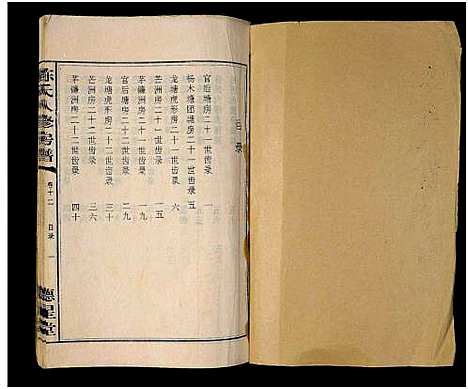 目录
官后塘房二十一世齿录 一
杨木塘团塘房二十一世齿录 五
龙塘虎形房二十一世齿录 六
芒洲房二十一世齿录 一五
茅镰洲房二十一世齿录 一九
官后塘房二十二世齿录 二九
龙塘虎形房二十二世齿录 三十
芒洲房二十二世齿录 三六
茅镰洲房二十二世齿录 四十
氏八修房谱
卷十二 目录 一
德星堂